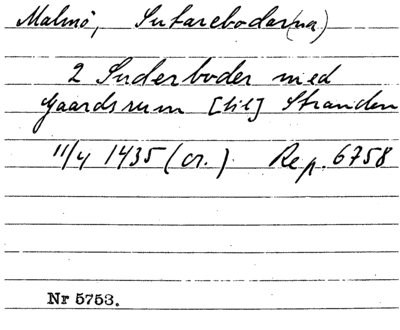 Malmö, Sutareboder(na)
2 Suderboder med
Gaardsrum [til] Stranden
11/4 1435 (or.) Rep. 6758
Nr 5753.